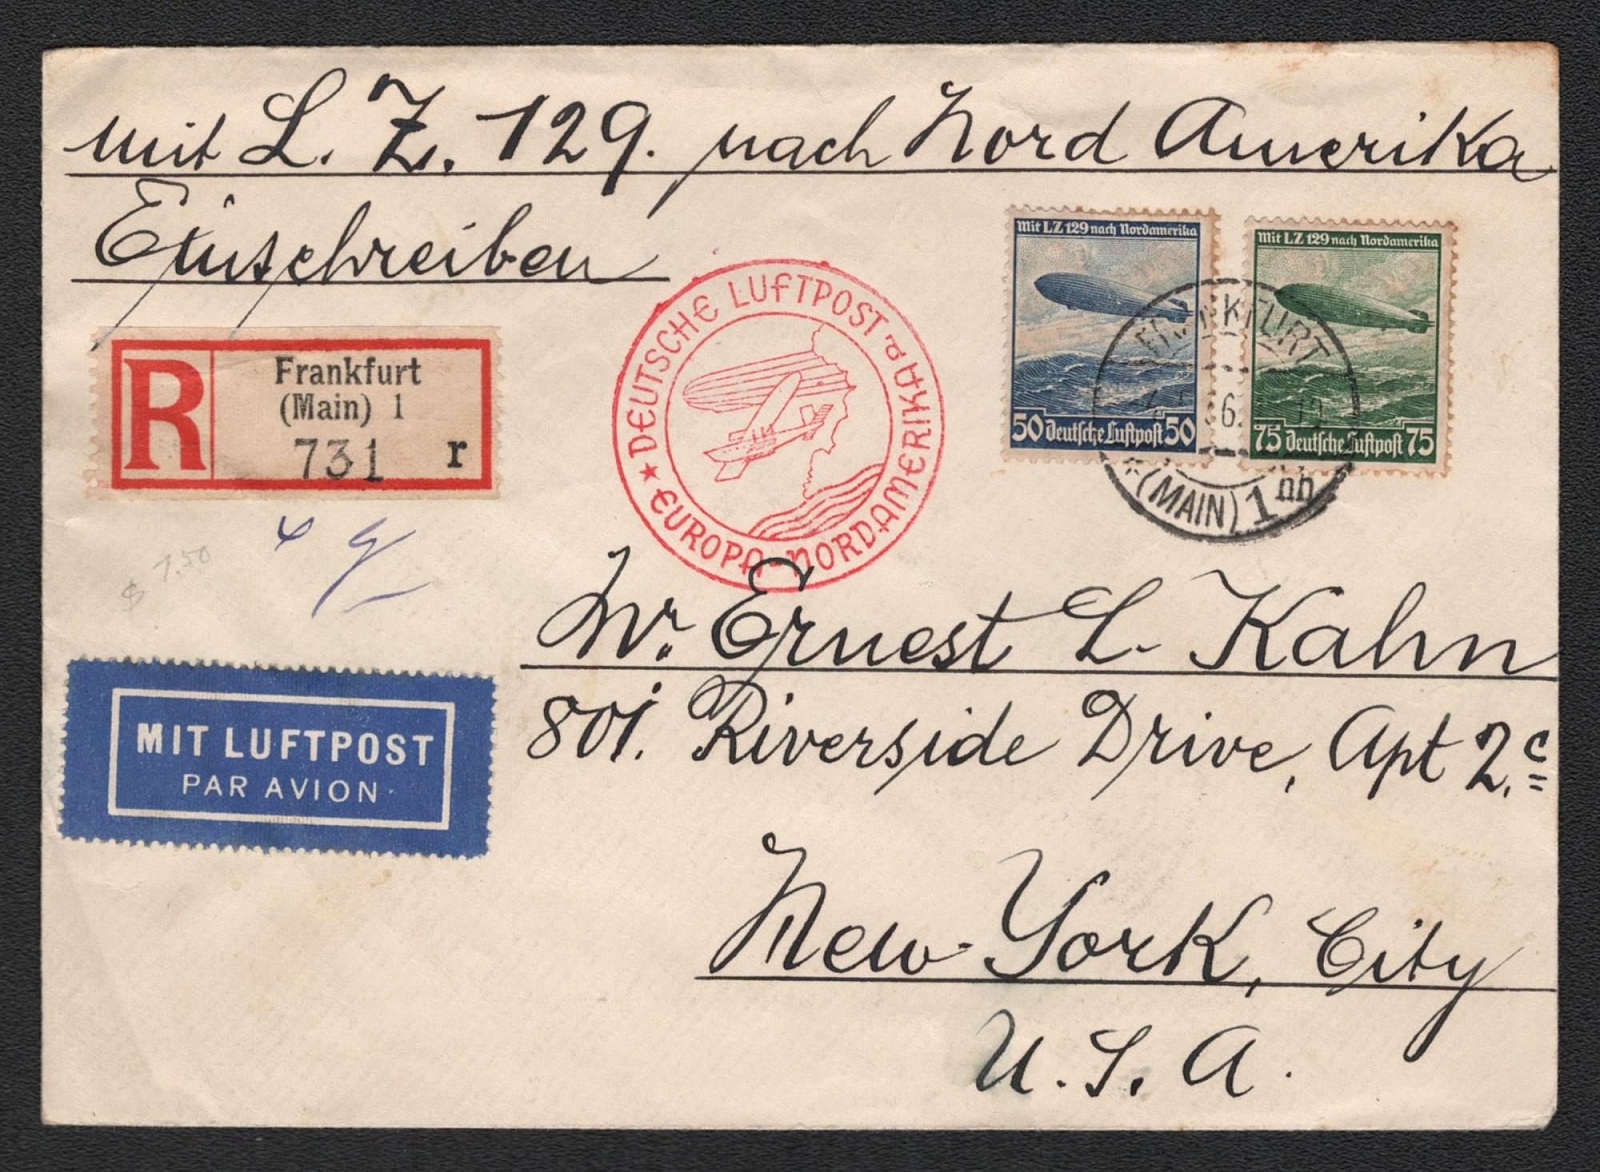 mit L. Z. 129. nach Nord Amerika
Einschreiben
Mit LZ 129 nach Nordamerika
50 Deutsche Luftpost 50
Mit LZ 129 nach Nordamerika
75 Deutsche Luftpost 75
FRANKFURT
(MAIN) 1 hh
DEUTSCHE LUFTPOST
EUROPA-NORDAMERIKA
R
Frankfurt
(Main) 1
731 r
$ 7.50
Mr. Ernest L. Kahn
801. Riverside Drive, Apt 2.c
MIT LUFTPOST
PAR AVION
New-York, City
U. S. A.